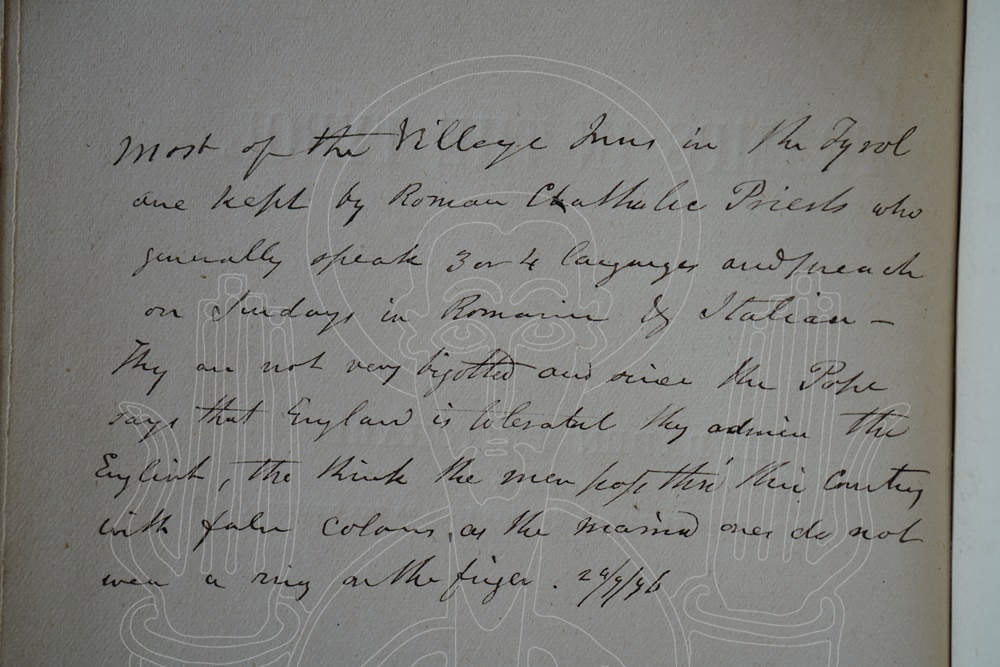 Most of the Village Inns in the Tyrol
are kept by Roman Chatholic Priests who
generally speak 3 or 4 languages and preach
on Sundays in Romain & Italian –
They are not very bigotted and since the Pope
says that England is tolerated they admire the
English, the think the men pass thro' their Country
with false colours, as the married ones do not
wear a ring on the finger. 24/9/46